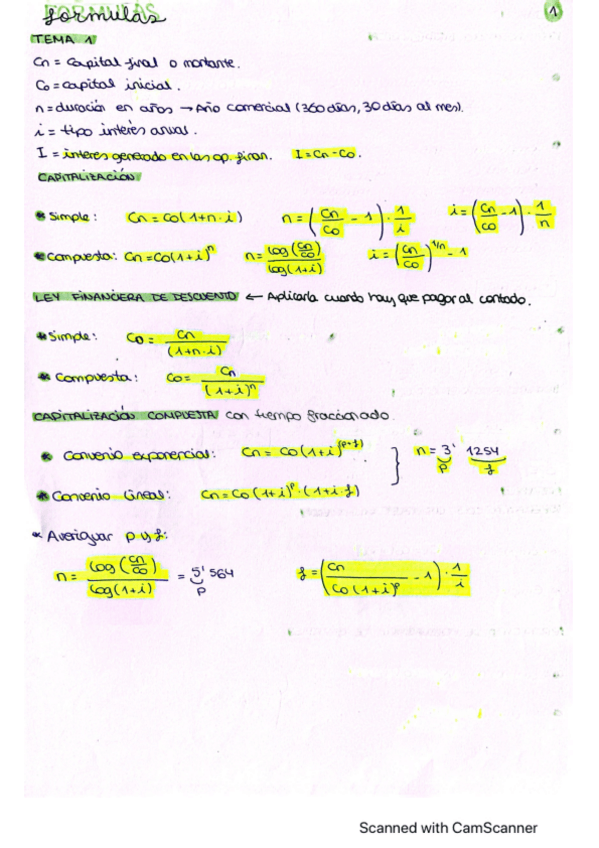 FORMULAS
formulas 1
TEMA 1
Cn = Capital final o montante.
Co = capital inicial.
n = duración en años → Año comercial (360 días, 30 días al mes).
i = tipo interés anual.
I = interes generado en las op. finan. I = Cn - Co.
CAPITALIZACIÓN
* Simple: Cn = Co(1+n·i) n = (Cn/Co - 1) · 1/i i = (Cn/Co - 1) · 1/n
* Compuesta: Cn = Co(1+i)^n n = log(Cn/Co)/log(1+i) i = (Cn/Co)^1/n - 1
LEY FINANCIERA DE DESCUENTO ← Aplicarla cuando hay que pagar al contado.
* Simple: Co = Cn/(1+n·i)
* Compuesta: Co = Cn/(1+i)^n
CAPITALIZACIÓN COMPUESTA con tiempo fraccionado.
* Convenio exponencial: Cn = Co(1+i)^(p+f) } n = 3' 1254
p f
* Convenio lineal: Cn = Co(1+i)^p · (1+i·f)
* Averiguar p y f:
n = log(Cn/Co)/log(1+i) = 5'564 f = (Cn/Co(1+i)^p - 1) · 1/i
p
Scanned with CamScanner